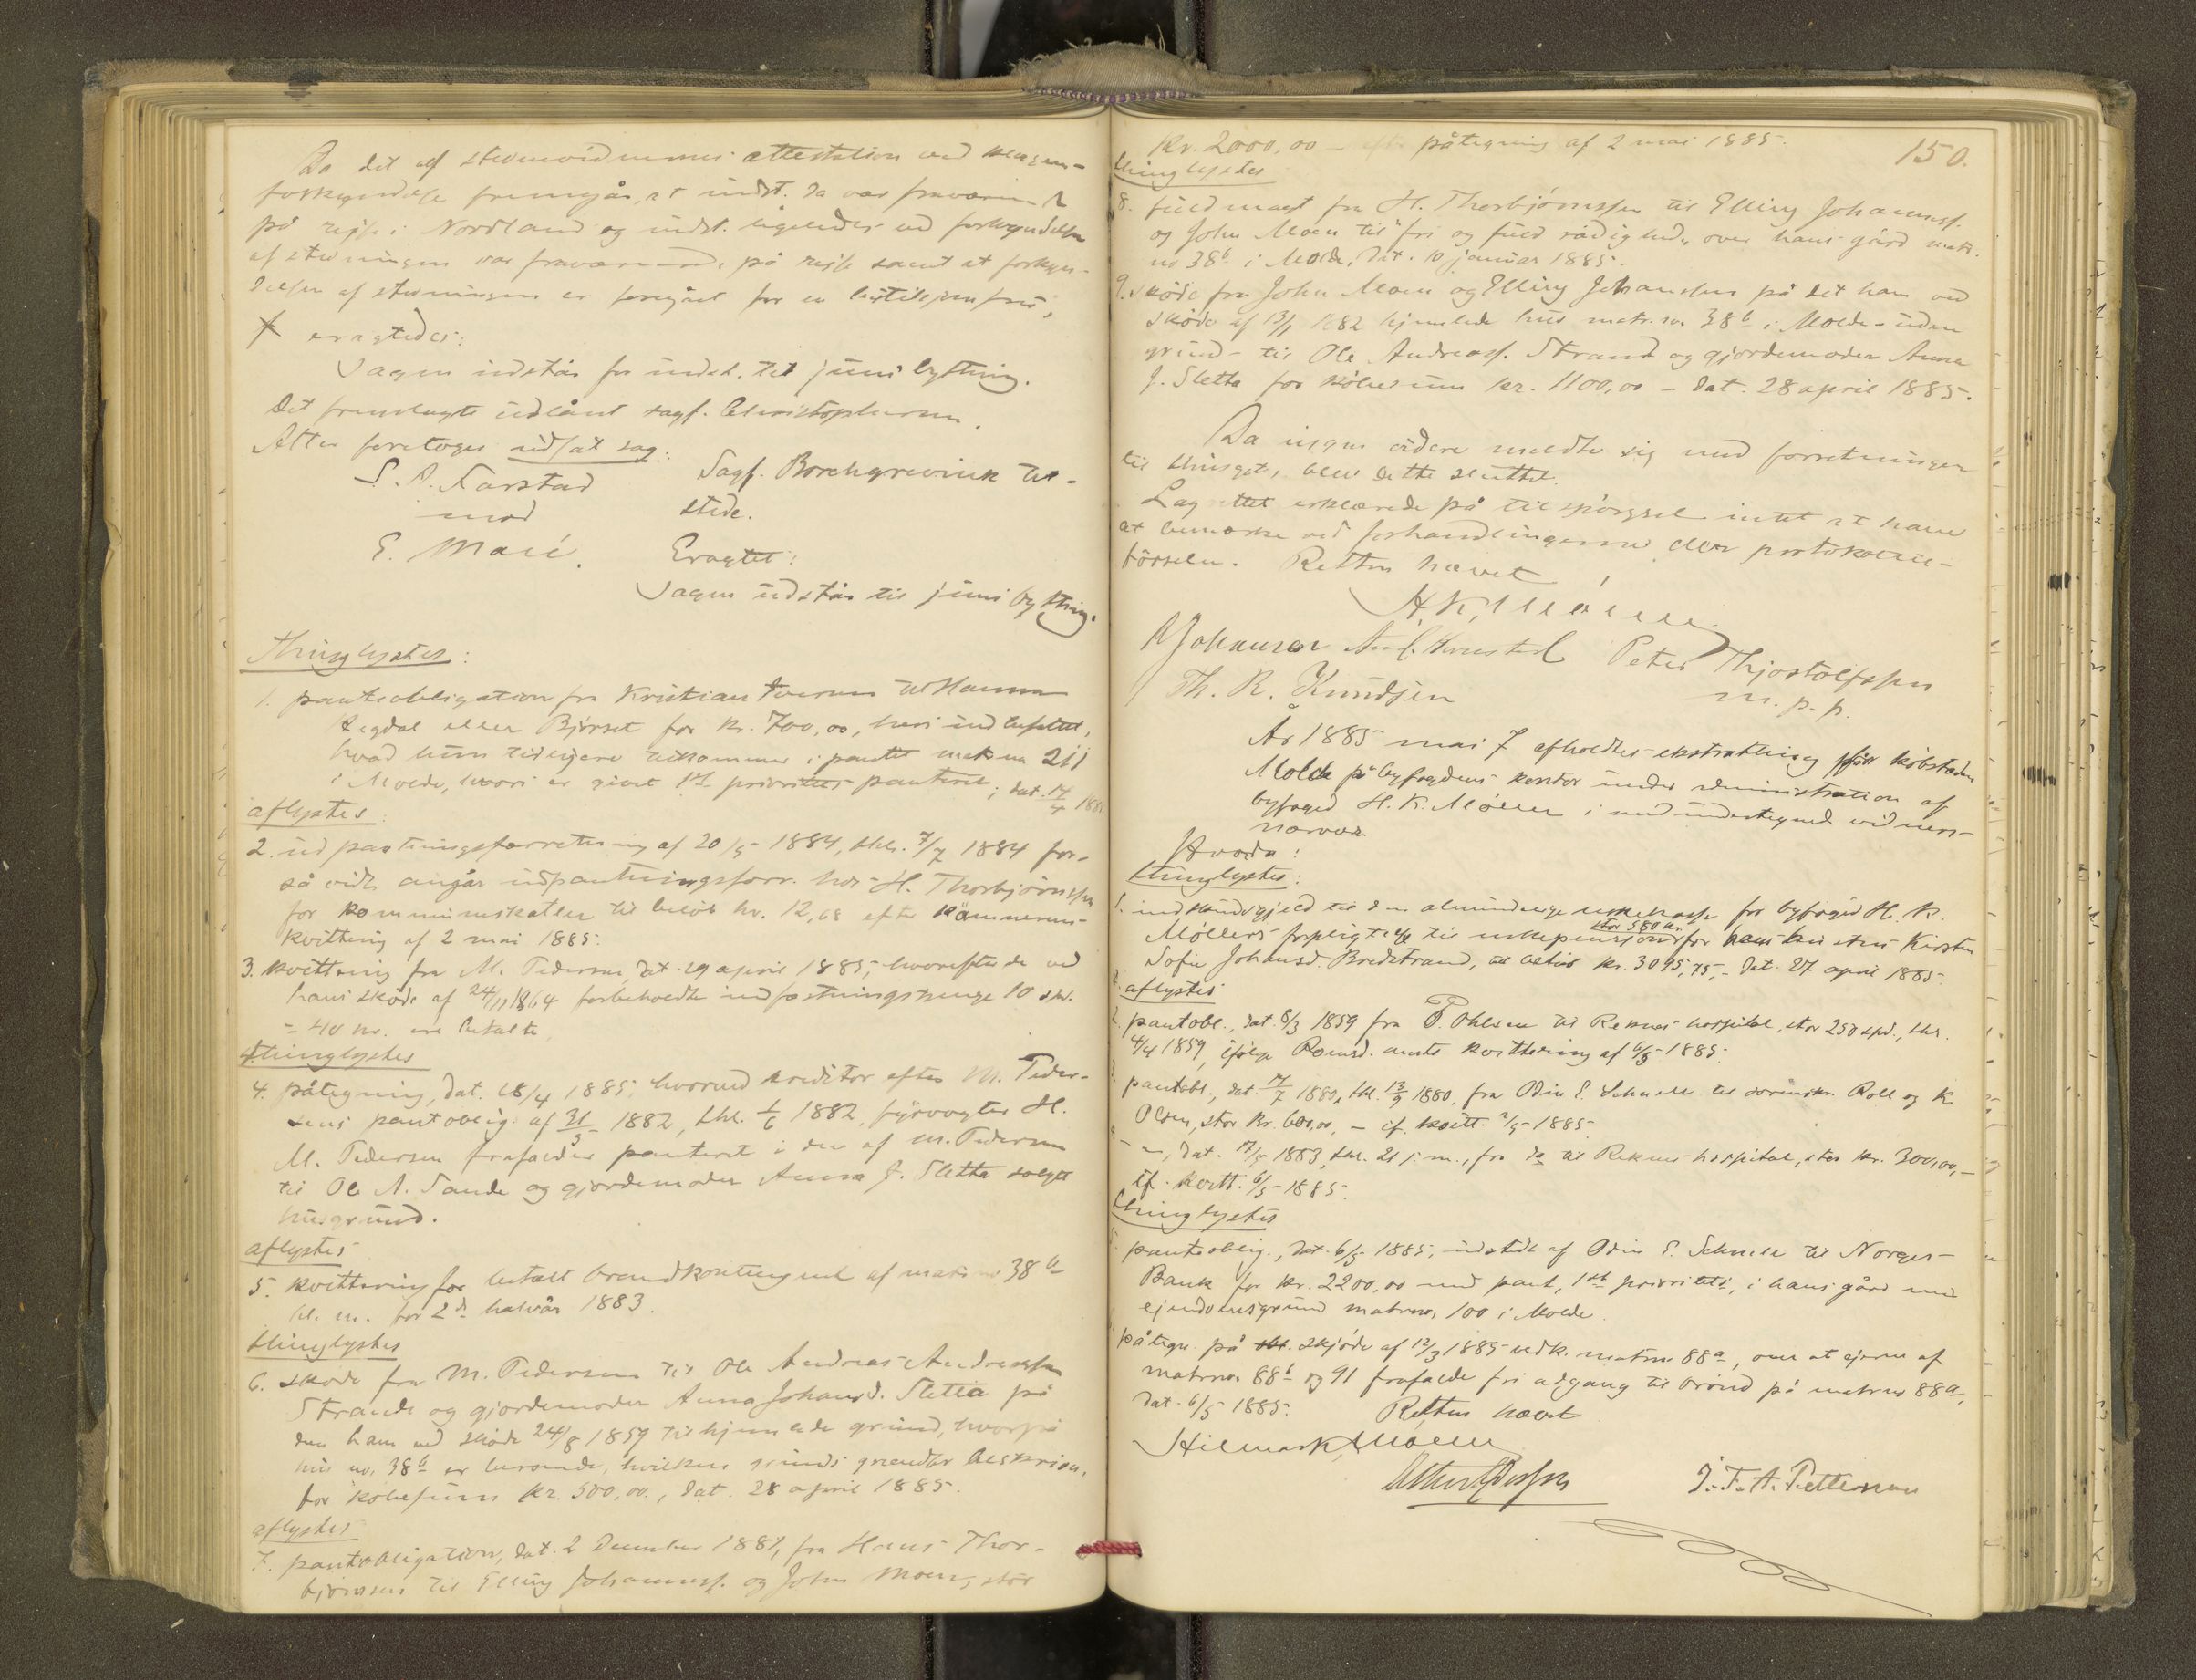 Da det af stevnevidnernes attestation ved
forkyndelse fremgår, at indst. da var fraværende
på rejse i Nordland og indst. ligeledes ved forkyndelsen
af stevningen var fraværende på rejse samt at forkyn-
delsen af stevningen er foregået for en
eragtedes:
Sagen udstår for indst. til juni bything.
Det fremlagte udlånt sagf. Christophersen.
Atter foretoges udsat sag:
S. A. Farstad
mod
E. Marié.
Sagf. Borchgrevink til-
stede.
Eragtet:
Sagen udstår til juni bything.
Thinglystes:
1. pantobligation fra Kristian til Hanna
eller Bjørset for kr. 700,00, heri indbefattet,
hvad hun tidligere tilkommer i pantet matr. no 211
i Molde, hvori er givet 1st prioritets panteret; dat. 14/4 188
aflystes:
2. udpantningsforretning af 20/5 1884, thl. 7/7 1884 for-
så vidt angår udpantningsforr. hos H. Thorbjørnsen
for kommuneskatter til beløb kr. 12,68 efter kämnerens
kvittering af 2 mai 1885.
3. kvittering fra M. Pedersen, dat. 29 april 1885, hvorefter de ved
hans skøde af 24/11 1864 forbeholdte indfæstningspenge 10 spd.
= 40 kr. ere betalte
thinglystes
4. påtegning, dat. 28/4 1885, hvorved kreditor efter M. Peder-
sens pantoblig. af 31/5 1882, thl. 1/6 1882, fyrvogter H.
M. Pedersen frafalder panteret i den af M. Pedersen
til Ole A. Sande og gjordemoder Anna J. Sletta solgte
husgrund.
aflystes
5. kvittering for betalt brandkontingent af matr. no 38 b
kl. m. for 2det halvår 1883.
thinglystes
6. skøde fra M. Pedersen til Ole Andreas Andreassen
Strande og gjordemoder Anna Johansd. Sletta på
den ham ved skøde 24/8 1859 tilhjemlede grund, hvorpå
hus no. 38 b er beroende, hvilken grunds grændser beskrives,
for købesum kr. 500,00, dat. 28 april 1885.
aflystes
7. pantobligation, dat. 2 December 1881, fra Hans Thor-
bjørnsen til Elling Johannesf. og John Moen, stor
150.
kr. 2000,00 – eft. påtegning af 2 mai 1885.
thinglystes
8. fuldmagt fra H. Thorbjørnssen til Elling Johannesf.
og John Moen til "fri og fuld rådighed" over hans gård matr.
no 38 b i Molde, dat. 10 januar 1885.
9. skøde fra John Moen og Elling Johansen på det ham ved
skøde af 13/1 1882 hjemlede hus matr. no. 38 b i Molde – uden
grund – til Ole Andreasf. Strand og gjordemoder Anna
J. Sletta for købesum kr. 1100,00 – dat. 28 april 1885.
Da ingen videre meldte sig med forretninger
til thinget, blev dette sluttet.
Lagrettet erklærede på tilspørgsel intet at have
at bemærke ved forhandlingerne eller protokoll-
førselen. Retten hævet
H. K. Møller
Johansen Peter Thjostolfssen
Th. R. Knudsen m. p. p.
År 1885 mai 7 afholdtes ekstrathing for købstaden
Molde på byfogdens kontor under administration af
byfoged H. K. Møller i med undertegnede vidners
nærvær.
Hvorda:
thinglystes:
1. indskudsgjeld til den almindelige enkekasse for byfoged H. K.
stor 580 kr.
Møllers forpligtelse til enkepension for hans hustru Kirsten
Sofie Johansd. Bredstrand, til beløb kr. 3095,75, – dat. 27 april 1885.
aflystes
2. pantobl., dat. 8/3 1859 fra P. Ohlsen til Reknes hospital, stor 250 spd., thl.
4/4 1859, ifølge Romsd. amts kvittering af 6/5 1885.
pantobl., dat. 14/7 1880, thl. 13/9 1880, fra Odin E. Schnell til sorenskr. Roll og K.
Olsen, stor kr. 600,00, – if. kvitt. 2/5 1885.
– –, dat. 19/5 1883, thl. 21 s. m., fra do til Reknes hospital, stor kr. 300,00, –
if. kvitt. 6/5 1885.
thinglystes
pantoblig., dat. 6/5 1885, udstedt af Odin E. Schnell til Norges
Bank for kr. 2200,00 med pant, 1st prioritets, i hans gård med
ejendomsgrund matr. no. 100 i Molde.
påtegn. på skjøde af 12/3 1885 vedk. matr. no 88 a, om at ejerne af
matr. no. 88 b og 91 frafalde fri adgang til brønd på matr. no 88 a,
dat. 6/5 1885. Retten hævet
Hilmar K. Møller
J. F. A. Pettersen